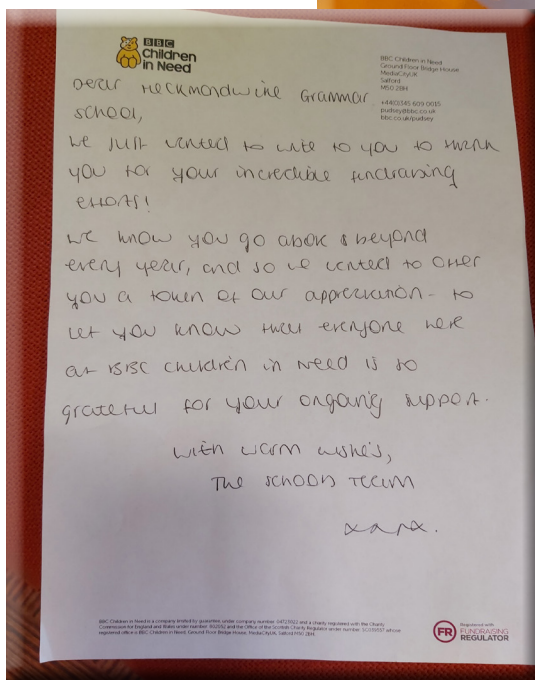 BBC
Children
in Need
BBC Children in Need
Ground Floor Bridge House
MediaCityUK
Salford
M50 2BH
+44(0)345 609 0015
pudsey@bbc.co.uk
bbc.co.uk/pudsey
Dear Heckmondwike Grammar
School,
We just wanted to write to you to thank
you for your incredible fundraising
efforts!
We know you go above & beyond
every year, and so we wanted to offer
you a token of our appreciation - to
let you know that everyone here
at BBC Children in Need is so
grateful for your ongoing support.
With warm wishes,
The Schools Team
xxxx.
BBC Children in Need is a company limited by guarantee under company number: 04723022 and a charity registered with the Charity
Commission for England and Wales under number: 802052 and the Office of the Scottish Charity Regulator under number: SC039557 whose
registered office is BBC Children in Need, Ground Floor Bridge House, MediaCityUK, Salford M50 2BH.
FR
Registered with
FUNDRAISING
REGULATOR